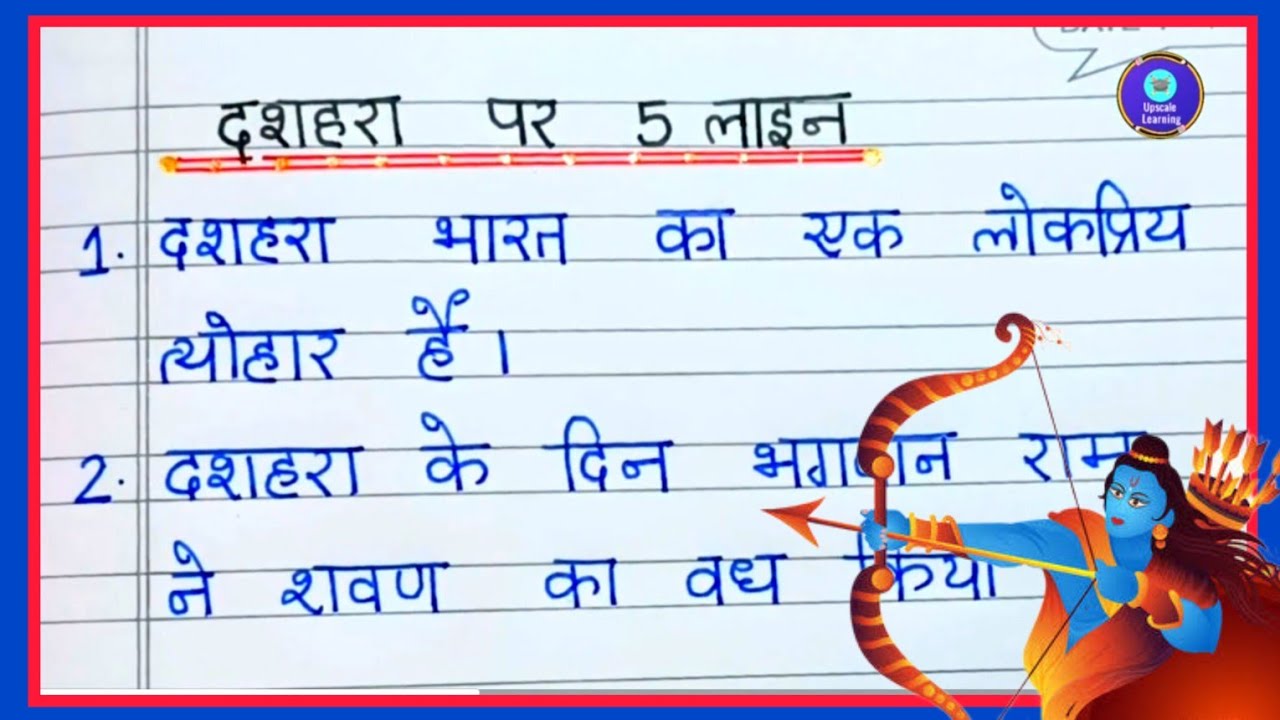 दशहरा पर 5 लाइन
Upscale
Learning
1. दशहरा भारत का एक लोकप्रिय
त्योहार है।
2. दशहरा के दिन भगवान राम
ने रावण का वध किया